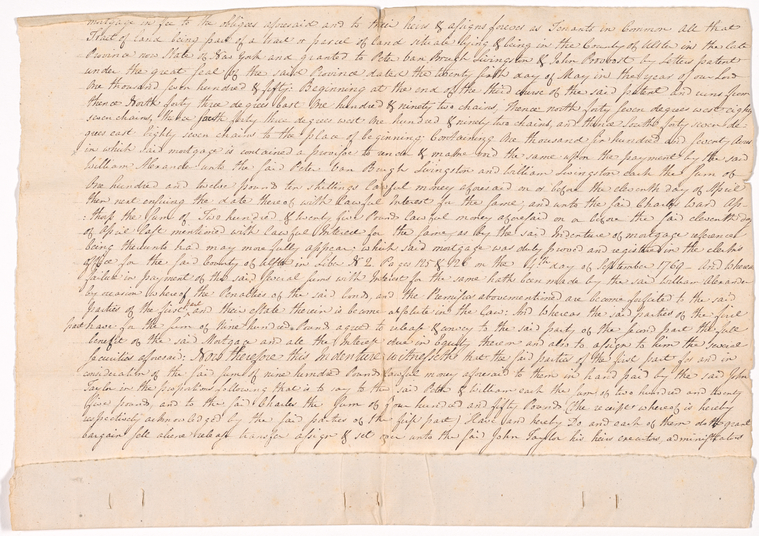 mortgage in fee to the obligees aforesaid and to their heirs & assigns forever as Tenants in Common All that
Tract of Land being part of a tract or parcel of Land situate lying & being in the County of Ulster in the late
Province now State of New York and granted to Peter van Brugh Livingston & John Provoost by Letters patent
under the great seal of the said Province dated the twenty fifth day of May in the year of our Lord
One thousand seven hundred & fifty: Beginning at the end of the third course of the said patent and runs from
thence North forty three degrees east One hundred & ninety two chains, thence north forty seven degrees west eighty
seven chains, thence south forty three degrees west One hundred & ninety two chains, and thence South forty seven de-
grees east Eighty seven chains to the place of beginning Containing One thousand six hundred and seventy Acres
in which said mortgage is contained a proviso to render & make void the same upon the payment by the said
William Alexander unto the said Peter van Brugh Livingston and William Livingston each the Sum of
One hundred and twelve pounds ten shillings Lawful money aforesaid on or before the eleventh day of April
then next ensuing the date thereof with Lawful Interest for the same, and unto the said Charles Ward Ap-
thorp the Sum of Two hundred & twenty five Pounds Lawful money aforesaid on or before the said eleventh day
of April last mentioned with Lawful Interest for the same, as by the said Indenture of mortgage reference
being thereunto had may more fully appear, which said mortgage was duly proved and registered in the clerks
office for the said County of Ulster in Libr No 2 Pages 125 & 126 on the 4th day of September 1769 - And whereas
failure in payment of the said several sums with Interest for the same hath been made by the said William Alexander
by reason whereof the Penalties of the said bond, and the Premises abovementioned are become forfeited to the said
parties of the first part and their estate therein is become absolute in the Law: And Whereas the said parties of the first
part have for the sum of Nine hundred Pounds agreed to release & convey to the said party of the second part the full
benefit of the said Mortgage and all the Interest due in equity thereon and also to assign to him the several
securities aforesaid: Now therefore this Indenture Witnesseth that the said parties of the first part for and in
consideration of the said sum of nine hundred Pounds Lawful money aforesaid to them in hand paid by the said John
Taylor in the proportions following that is to say to the said Peter & William each the sum of two hundred and twenty
five pounds, and to the said Charles the sum of four hundred and fifty Pounds (the receipt whereof is hereby
respectively acknowledged by the said parties of the first part) Have and hereby Do and each of them doth grant
bargain sell aliene release transfer assign & set over unto the said John Taylor his heirs executors administrators